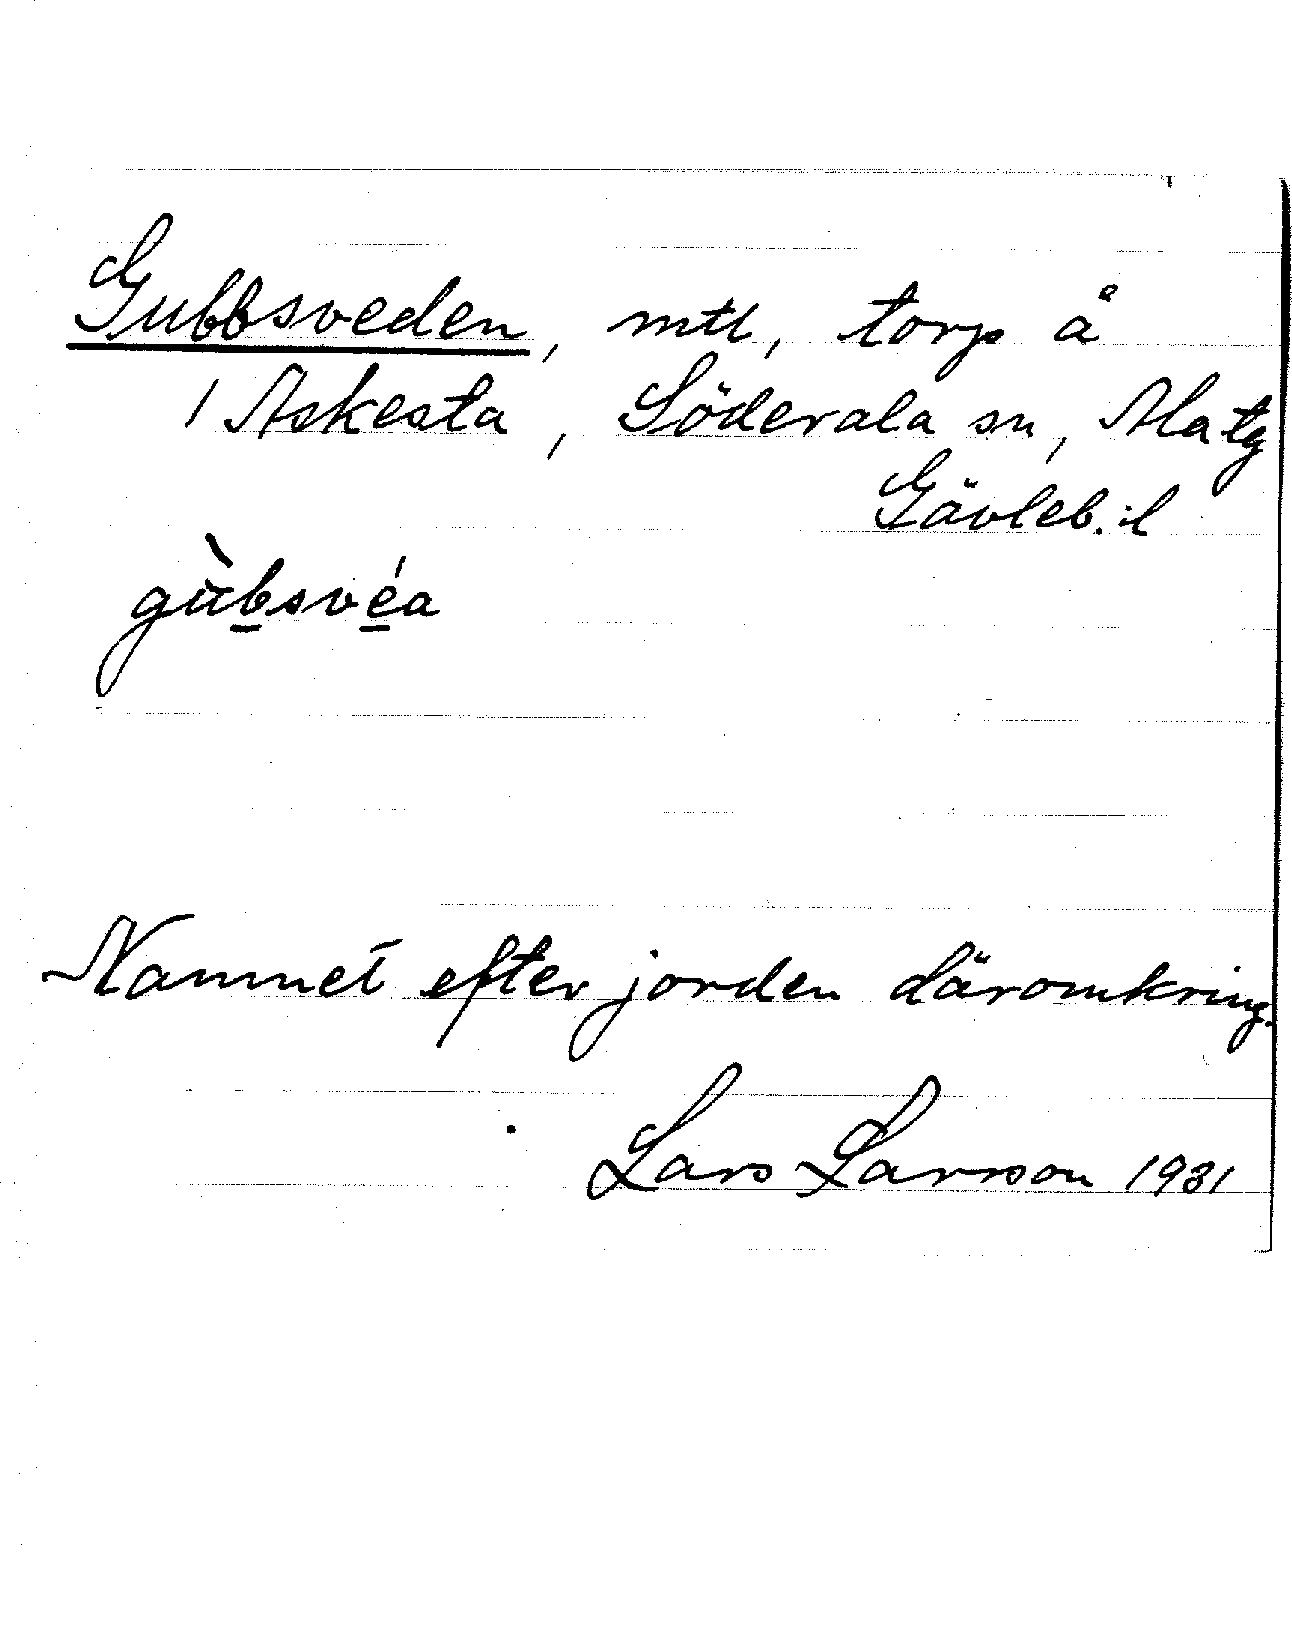 Gubbsveden, mtl, torp å
1 Askesta, Söderala sn, Ala tg
Gävleb. l
gùbsvéa
Namnet efter jorden däromkring.
Lars Larsson 1931